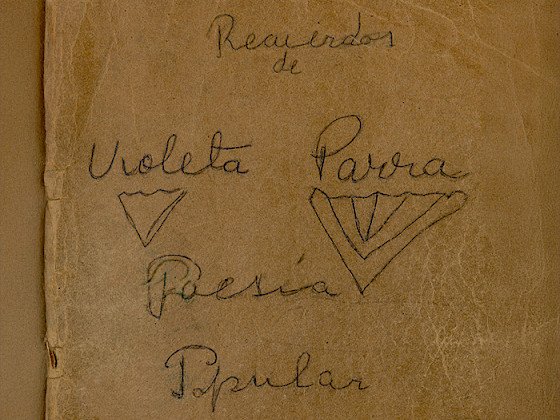 Recuerdos
de
Violeta Parra
Poesía
Popular